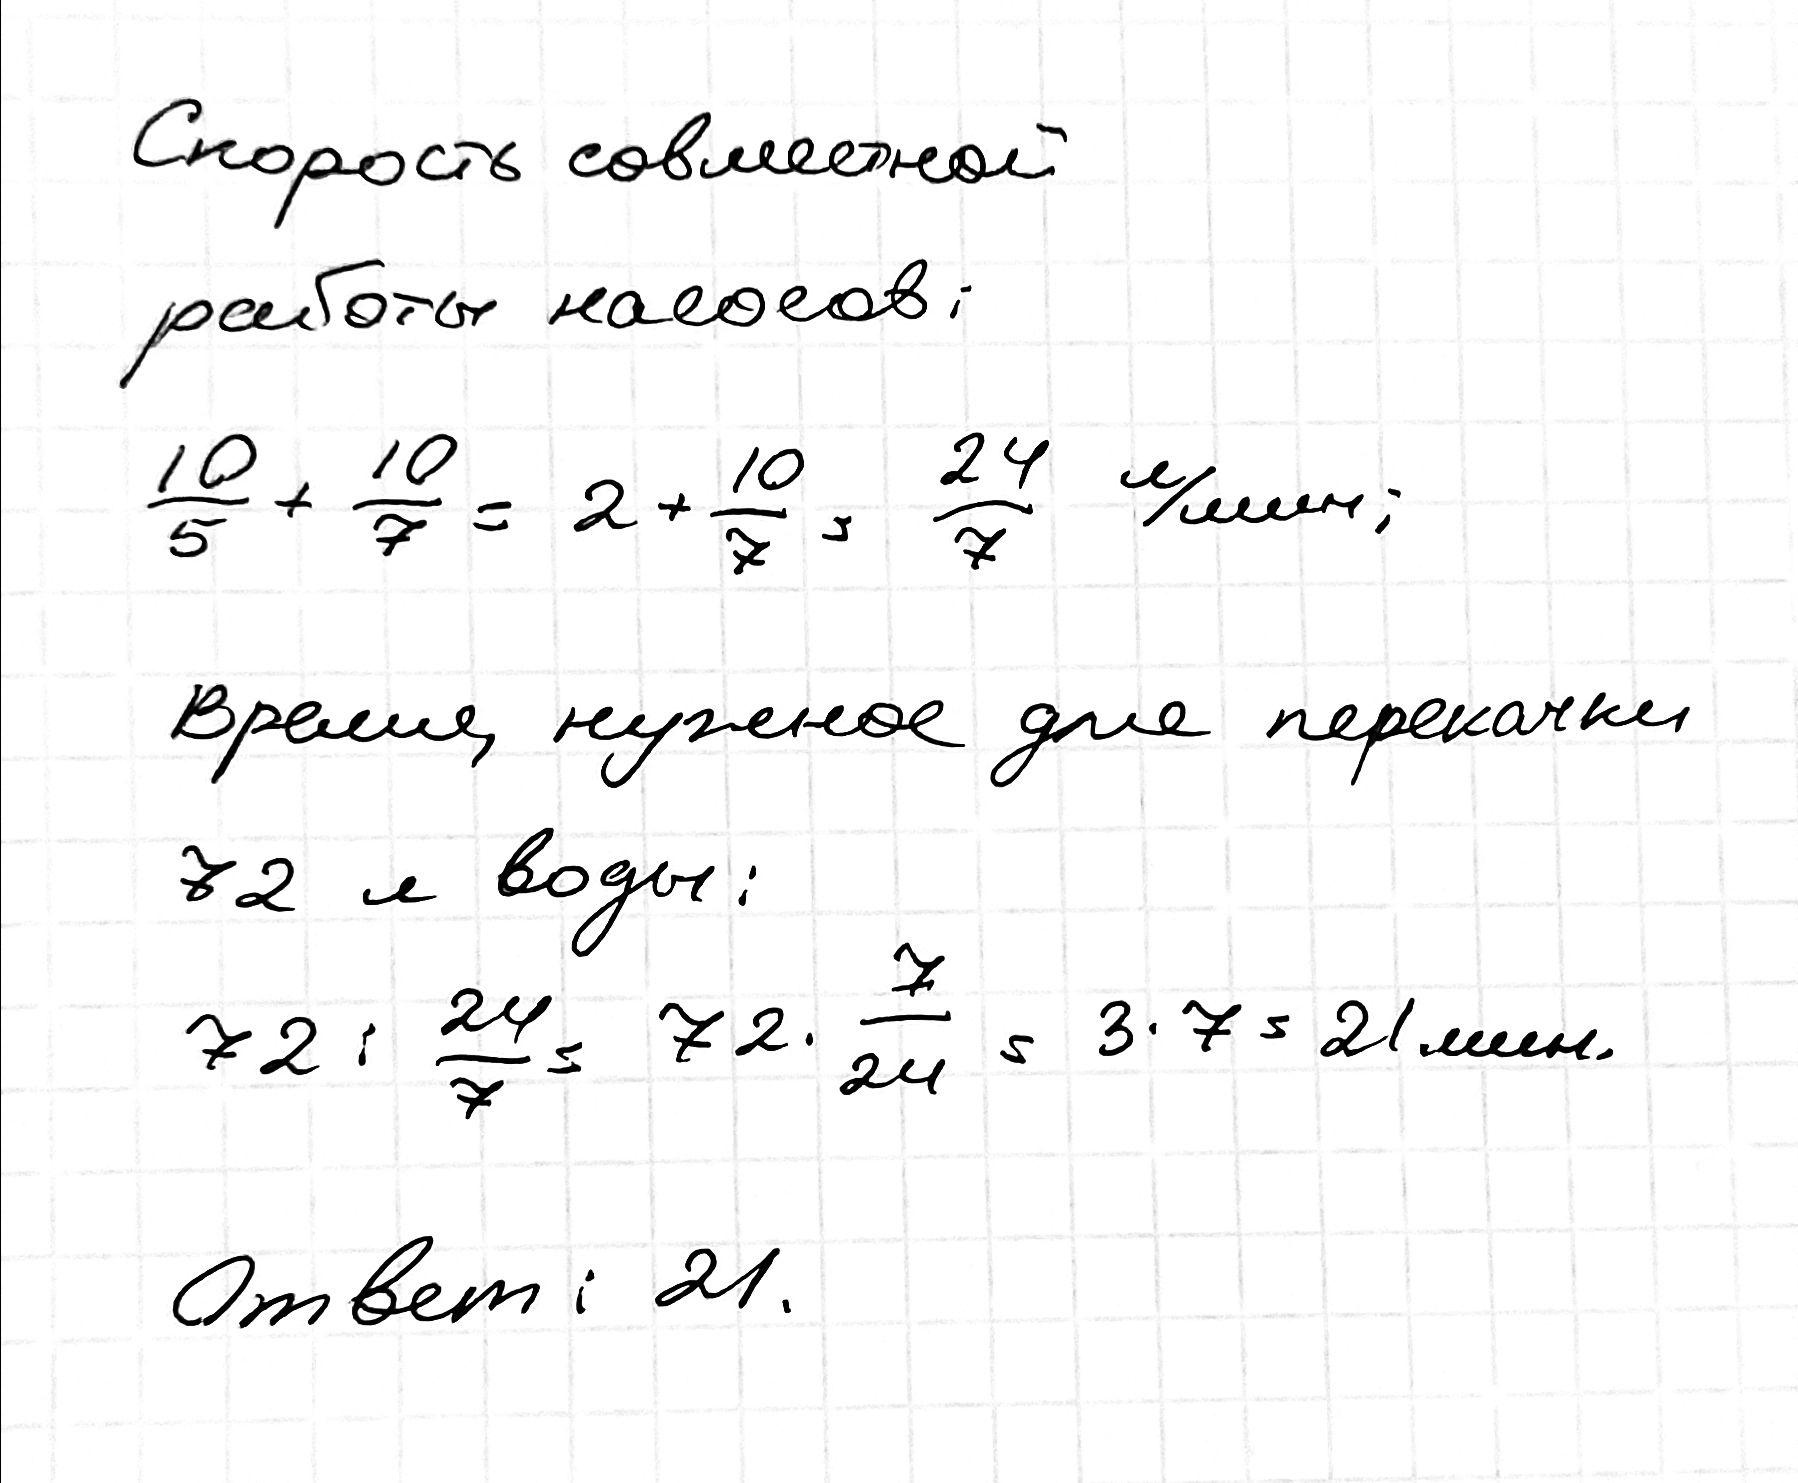 Скорость совместной
работы насосов:
10/5 + 10/7 = 2 + 10/7 = 24/7 л/мин;
Время, нужное для перекачки
72 л воды:
72 : 24/7 = 72 · 7/24 = 3 · 7 = 21 мин.
Ответ: 21.